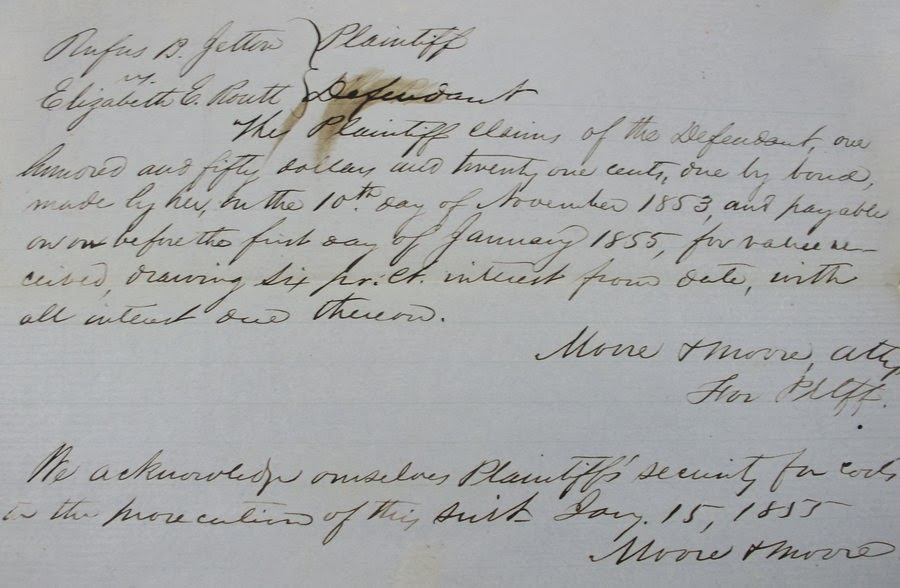 Rufus B. Jetton } Plaintiff
vs.
Elizabeth E. Routt } Defendant
The Plaintiff claims of the Defendant, one
hundred and fifty dollars and twenty one cents, due by bond,
made by her, on the 10th. day of November 1853, and payable
on or before the first day of January 1855, for value re-
ceived, drawing six pr. ct. interest from date, with
all interest due thereon.
Moore & Moore, attys
For Pltff.
We acknowledge ourselves Plaintiff's security for costs
in the prosecution of this suit Jany. 15, 1855
Moore & Moore